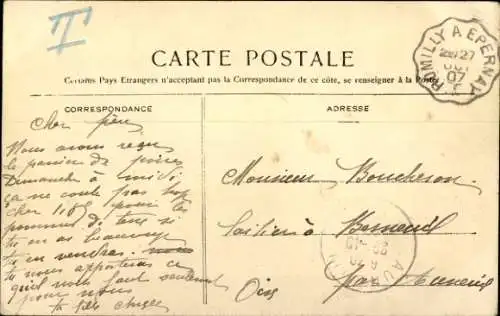 T
CARTE POSTALE
Certains Pays Etrangers n'acceptant pas la Correspondance de ce côté, se renseigner à la Poste
ROMILLY A EPERNAY
27
07
CORRESPONDANCE
ADRESSE
Cher frère
Nous avons reçu
le panier de poires
Dimanche à midi
ça ne coute pas trop
cher 1f85 pour les
pommes de terre si
tu en as beaucoup
tu en vendras
tu nous apporteras ce
qu'il nous faut seulement
pour nous
ta fille
Monsieur Boucheron
laitier à
Oise par